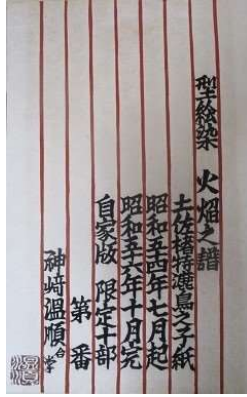 型絵染 火焔之譜
土佐楮特漉鳥之子紙
昭和五十四年七月起
昭和五十六年十月完
自家版 限定十部
第 番
神崎温順 合掌